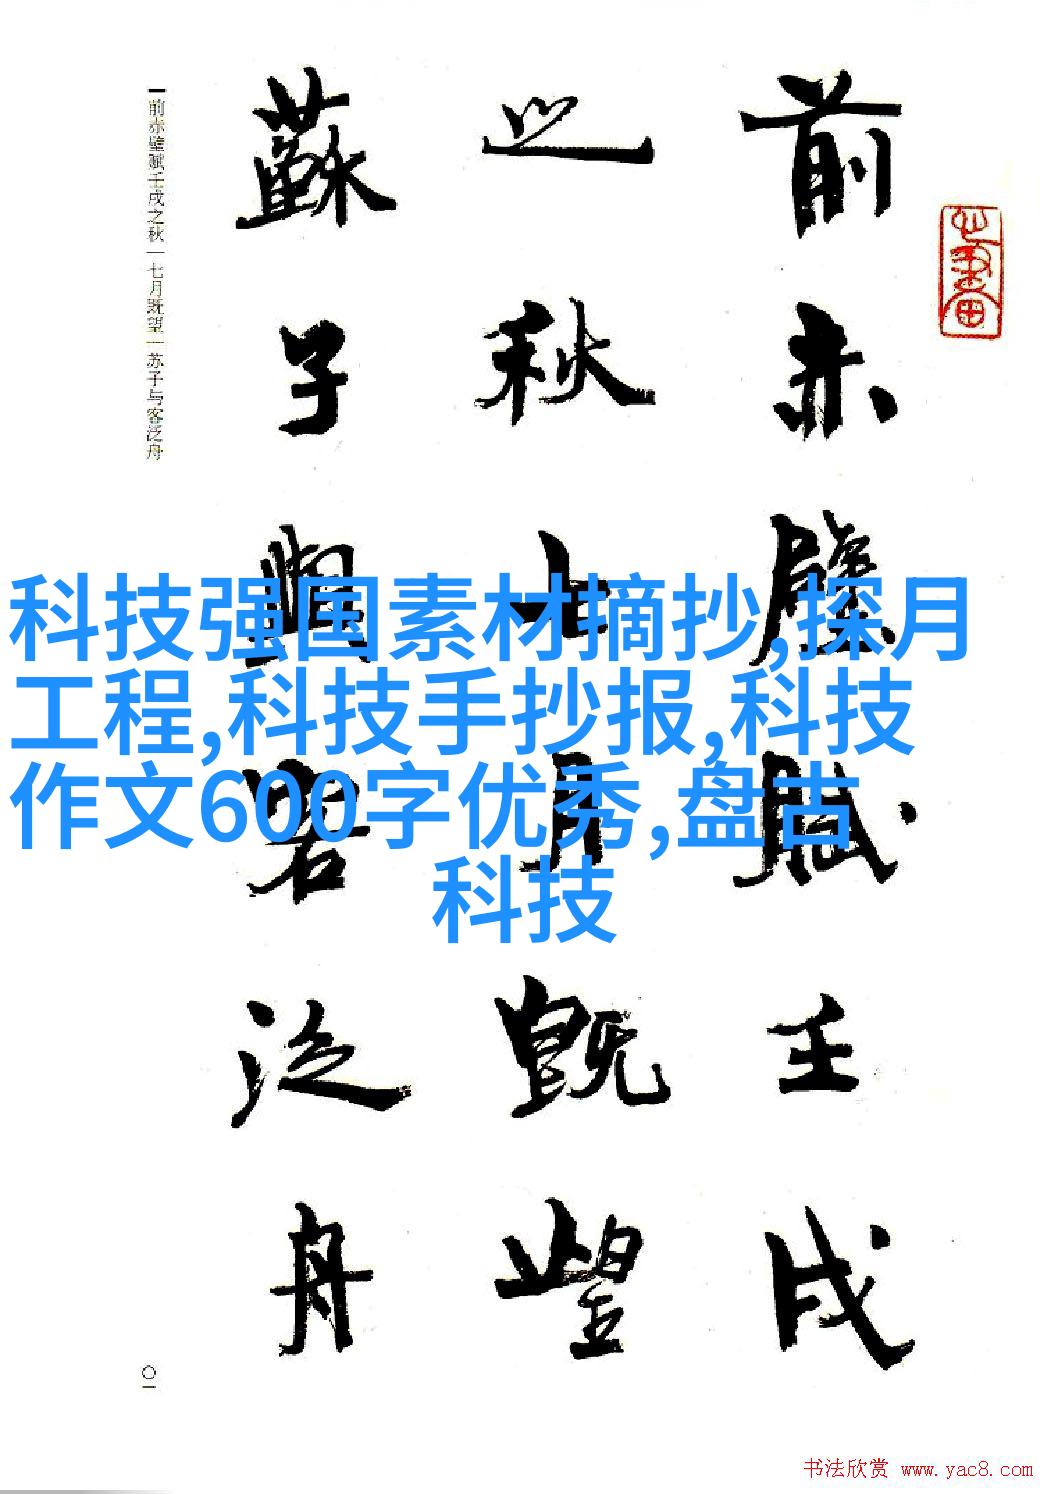 前赤壁赋壬戌
之秋七月既望
蘇子與客泛舟
前赤壁赋壬戌之秋|七月既望|苏子与客泛舟
科技强国素材摘抄,探月
工程,科技手抄报,科技
作文600字优秀,盘古
科技
〇一
书法欣赏 www.yac8.com